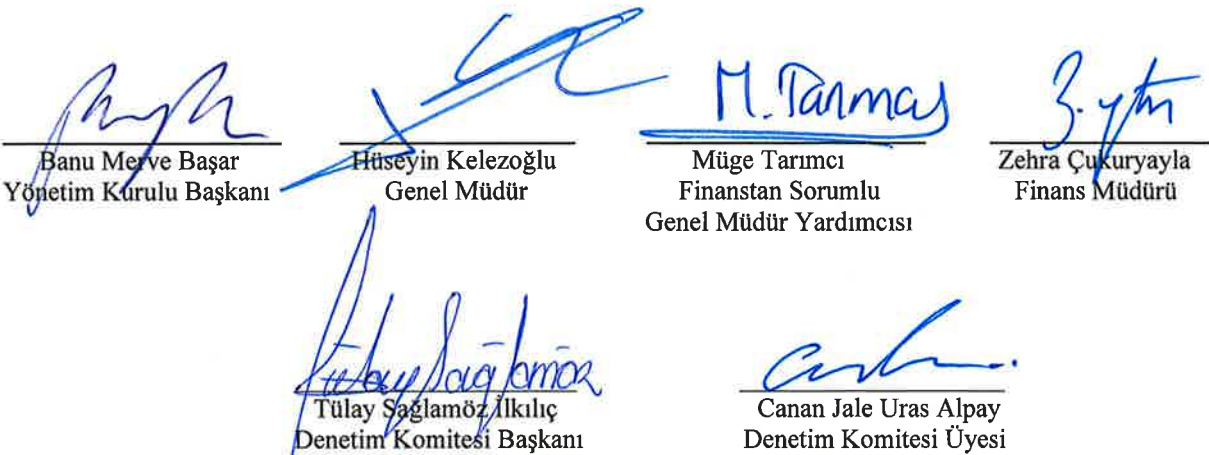 M. Tarımcı
Banu Merve Başar
Yönetim Kurulu Başkanı
Hüseyin Kelezoğlu
Genel Müdür
Müge Tarımcı
Finanstan Sorumlu
Genel Müdür Yardımcısı
Zehra Çukuryayla
Finans Müdürü
Tülay Sağlamöz
Tülay Sağlamöz İlkılıç
Denetim Komitesi Başkanı
Canan Jale Uras Alpay
Denetim Komitesi Üyesi